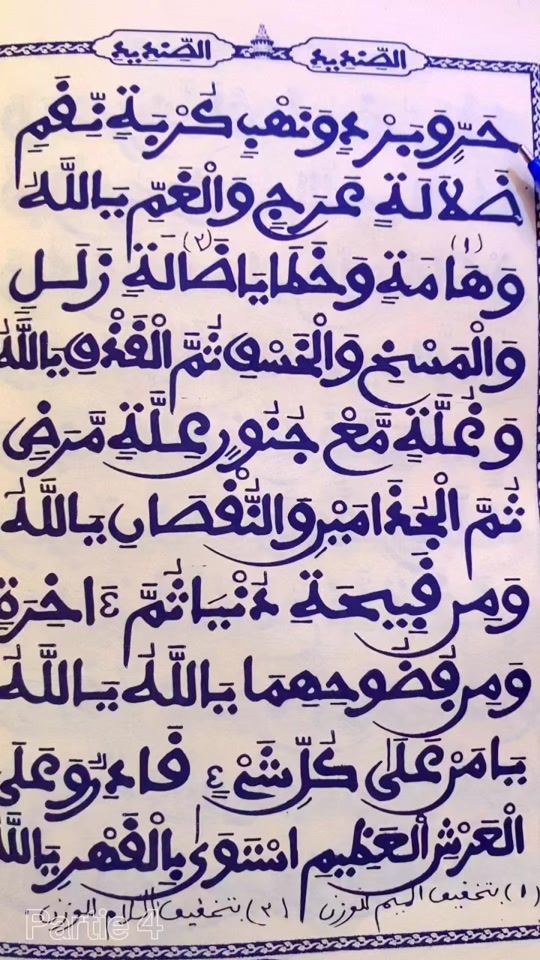 الصِّنْدِيدِ الصِّنْدِيدِ
حَرٍّ وَبَرْدٍ وَنَهْبٍ كُرْبَةٍ نِّقَمٍ
ضَلَالَةٍ عَرَجٍ وَالْغَمِّ يَااللَّهُ
وَهَامَةٍ (١) وَخَطَايَا ضَالَةٍ (٢) زَلَلٍ
وَالْمَسْخِ وَالْخَسْفِ ثُمَّ الْقَذْفِ يَااللَّهُ
وَغُلَّةٍ مَّعْ جُنُونٍ عِلَّةٍ مَّرَضٍ
ثُمَّ الْجُذَامَيْنِ وَالنُّقْصَانِ يَااللَّهُ
وَمِن قَبِيحَةِ دُنْيَا ثُمَّ ءَاخِرَةٍ
وَمِن فُضُوحِهِمَا يَااللَّهُ يَااللَّهُ
يَامَنْ عَلَىٰ كُلِّ شَيْءٍ قَادِرٌ وَعَلَى
الْعَرْشِ الْعَظِيمِ اسْتَوَىٰ بِالْقَهْرِ يَااللَّهُ
(١) بتخفيف الميم للوزن (٢) بتخفيف اللام للوزن
Partie 4